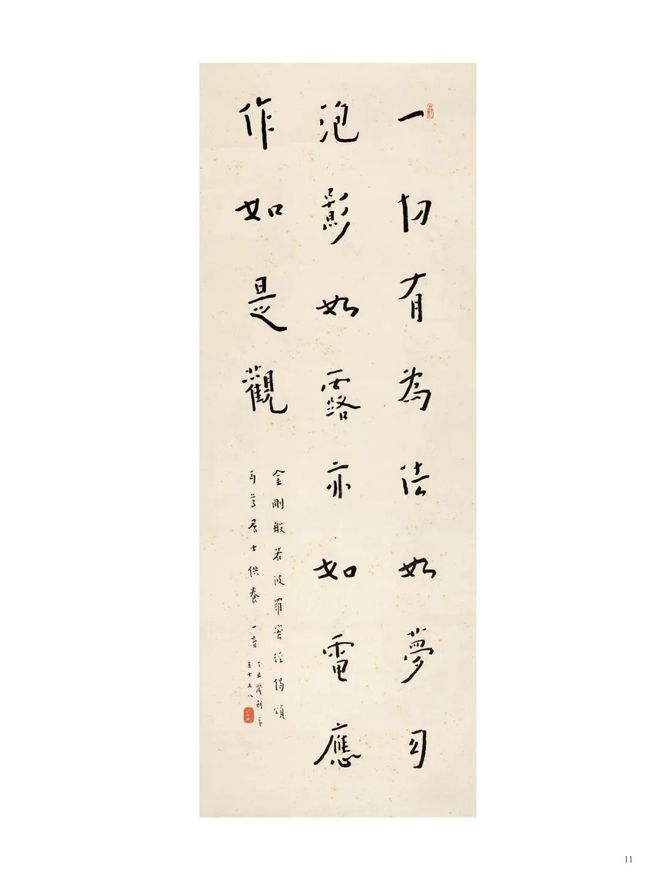 一切有為法如夢幻
泡影如露亦如電應
作如是觀
金剛般若波羅蜜經偈頌
丏尊居士供養 一音
丁丑
年
五十又八
11